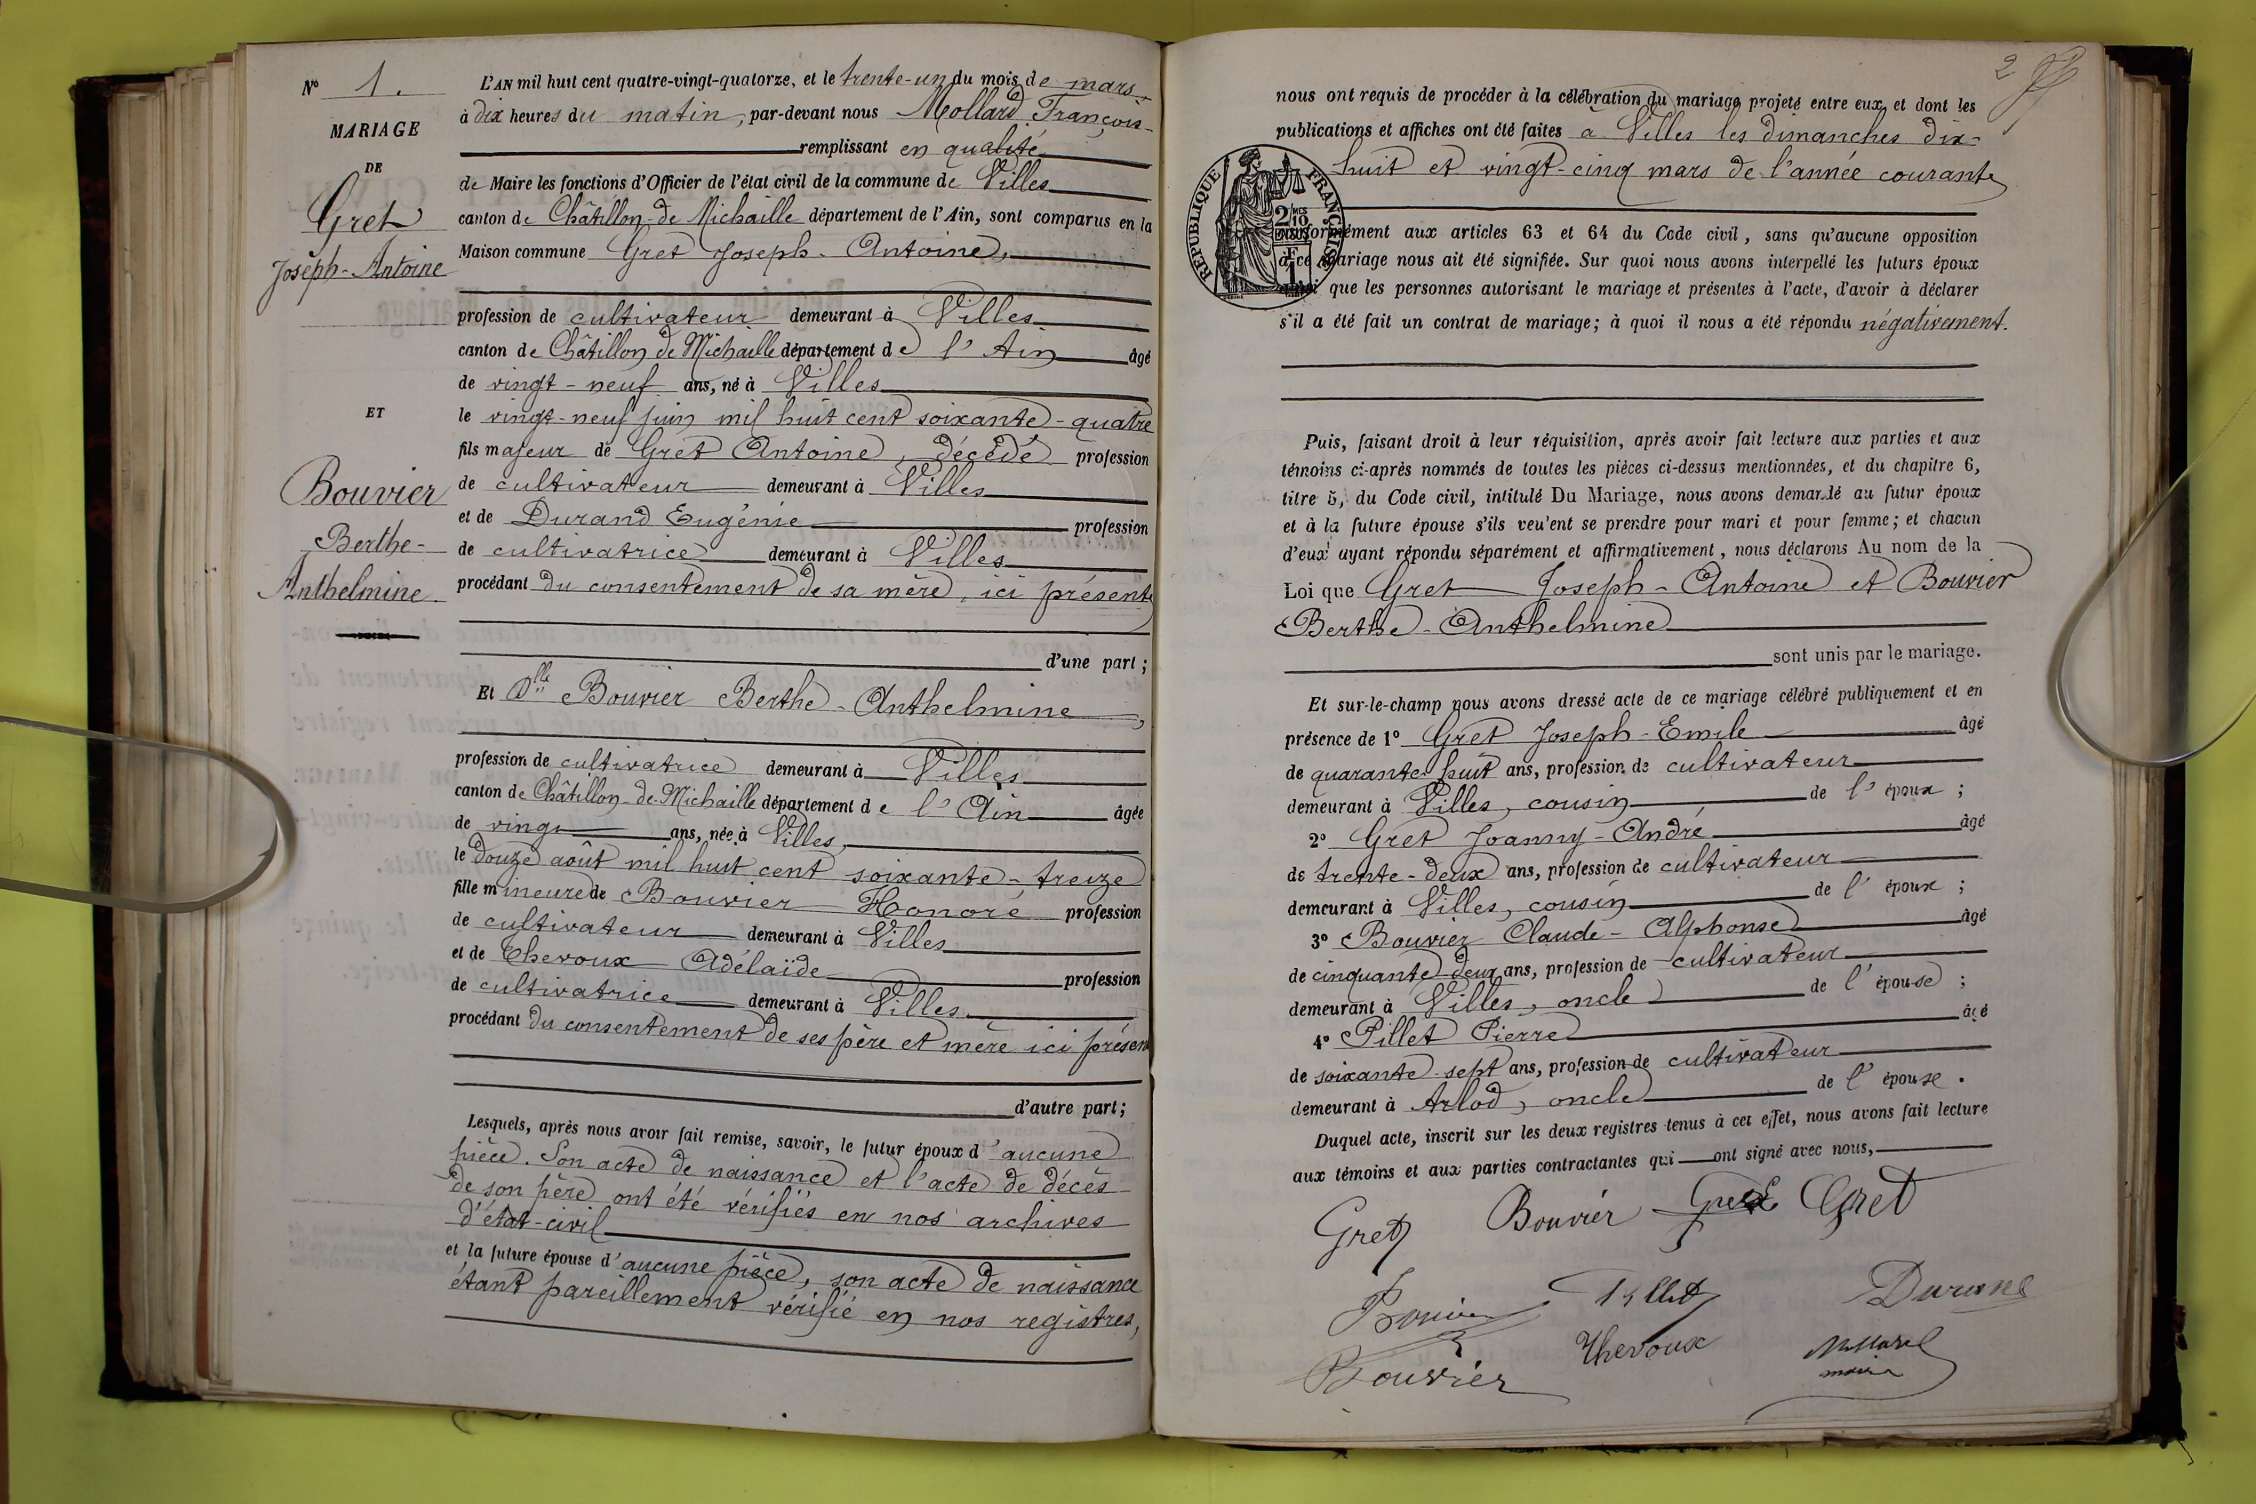 N° 1.
MARIAGE
DE
Gret
Joseph-Antoine
ET
Bouvier
Berthe-
Anthelmine
L'AN mil huit cent quatre-vingt-quatorze, et le trente-un du mois de mars
à dix heures du matin, par-devant nous Mollard François
remplissant en qualité
de Maire les fonctions d'Officier de l'état civil de la commune de Villes
canton de Châtillon-de-Michaille département de l'Ain, sont comparus en la
Maison commune Gret Joseph-Antoine,
profession de cultivateur demeurant à Villes
canton de Châtillon de Michaille département de l'Ain âgé
de vingt-neuf ans, né à Villes
le vingt-neuf juin mil huit cent soixante-quatre
fils majeur de Gret Antoine, décédé profession
de cultivateur demeurant à Villes
et de Durand Eugénie profession
de cultivatrice demeurant à Villes
procédant du consentement de sa mère, ici présente
d'une part ;
Et Dlle Bouvier Berthe-Anthelmine,
profession de cultivatrice demeurant à Villes
canton de Châtillon-de-Michaille département de l'Ain âgée
de vingt ans, née à Villes,
le douze août mil huit cent soixante-treize
fille mineure de Bouvier Honoré profession
de cultivateur demeurant à Villes
et de Thevoux Adélaïde profession
de cultivatrice demeurant à Villes
procédant du consentement de ses père et mère ici présen
d'autre part ;
Lesquels, après nous avoir fait remise, savoir, le futur époux d'aucune
pièce. Son acte de naissance et l'acte de décès
de son père ont été vérifiés en nos archives
d'état-civil
et la future épouse d'aucune pièce, son acte de naissance
étant pareillement vérifié en nos registres,
2
nous ont requis de procéder à la célébration du mariage projeté entre eux, et dont les
publications et affiches ont été faites à Villes les dimanches dix-
huit et vingt-cinq mars de l'année courante
RÉPUBLIQUE FRANÇAISE
conformément aux articles 63 et 64 du Code civil, sans qu'aucune opposition
à ce mariage nous ait été signifiée. Sur quoi nous avons interpellé les futurs époux
ainsi que les personnes autorisant le mariage et présentes à l'acte, d'avoir à déclarer
s'il a été fait un contrat de mariage ; à quoi il nous a été répondu négativement.
Puis, faisant droit à leur réquisition, après avoir fait lecture aux parties et aux
témoins ci-après nommés de toutes les pièces ci-dessus mentionnées, et du chapitre 6,
titre 5, du Code civil, intitulé Du Mariage, nous avons demandé au futur époux
et à la future épouse s'ils veulent se prendre pour mari et pour femme ; et chacun
d'eux ayant répondu séparément et affirmativement, nous déclarons Au nom de la
Loi que Gret Joseph-Antoine et Bouvier
Berthe-Anthelmine
sont unis par le mariage.
Et sur-le-champ nous avons dressé acte de ce mariage célébré publiquement et en
présence de 1° Gret Joseph-Emile âgé
de quarante huit ans, profession de cultivateur
demeurant à Villes, cousin de l'époux ;
2° Gret Joanny-André âgé
de trente-deux ans, profession de cultivateur
demeurant à Villes, cousin de l'époux ;
3° Bouvier Claude-Alphonse âgé
de cinquante deux ans, profession de cultivateur
demeurant à Villes, oncle de l'épouse ;
4° Pillet Pierre âgé
de soixante-sept ans, profession de cultivateur
demeurant à Arlod, oncle de l'épouse.
Duquel acte, inscrit sur les deux registres tenus à cet effet, nous avons fait lecture
aux témoins et aux parties contractantes qui ont signé avec nous,
Gret Bouvier Gret Gret
Bouvier Pillet Durand
Bouvier Thevoux Mollard
maire